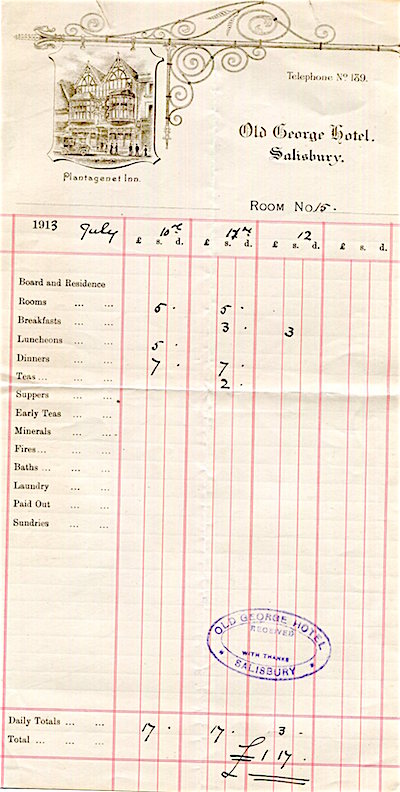 Telephone Nº 189.
Old George Hotel.
Salisbury.
Plantagenet Inn.
ROOM No 15.
1913 July 10th 12
£ s. d. £ s. d. £ s. d. £ s. d.
Board and Residence
Rooms ... ... 5 . 5 .
Breakfasts ... ... 3 . 3
Luncheons ... ... 5 .
Dinners ... ... 7 . 7 .
Teas ... ... 2 .
Suppers ... ...
Early Teas ... ...
Minerals ... ...
Fires ... ...
Baths ... ...
Laundry ... ...
Paid Out ... ...
Sundries ... ...
OLD GEORGE HOTEL
RECEIVED
WITH THANKS
SALISBURY
Daily Totals ... ... 17 . 17 . 3 .
Total ... ... £1 17 .